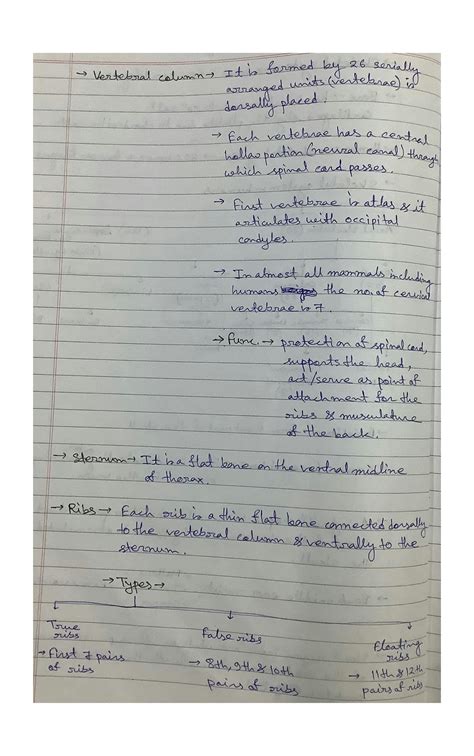 → Vertebral column → It is formed by 26 serially
arranged units (vertebrae) is
dorsally placed.
→ Each vertebrae has a central
hollow portion (neural canal) through
which spinal cord passes.
→ First vertebrae is atlas & it
articulates with occipital
condyles.
→ In almost all mammals including
humans the no. of cervical
vertebrae is 7.
→ Func. → protection of spinal cord,
supports the head,
act/serve as point of
attachment for the
ribs & musculature
of the back.
→ Sternum → It is a flat bone on the ventral midline
of thorax.
→ Ribs → Each rib is a thin flat bone connected dorsally
to the vertebral column & ventrally to the
sternum.
→ Types →
True
ribs
→ First 7 pairs
of ribs
False ribs
→ 8th, 9th & 10th
pairs of ribs
Floating
ribs
→ 11th & 12th
pairs of ribs